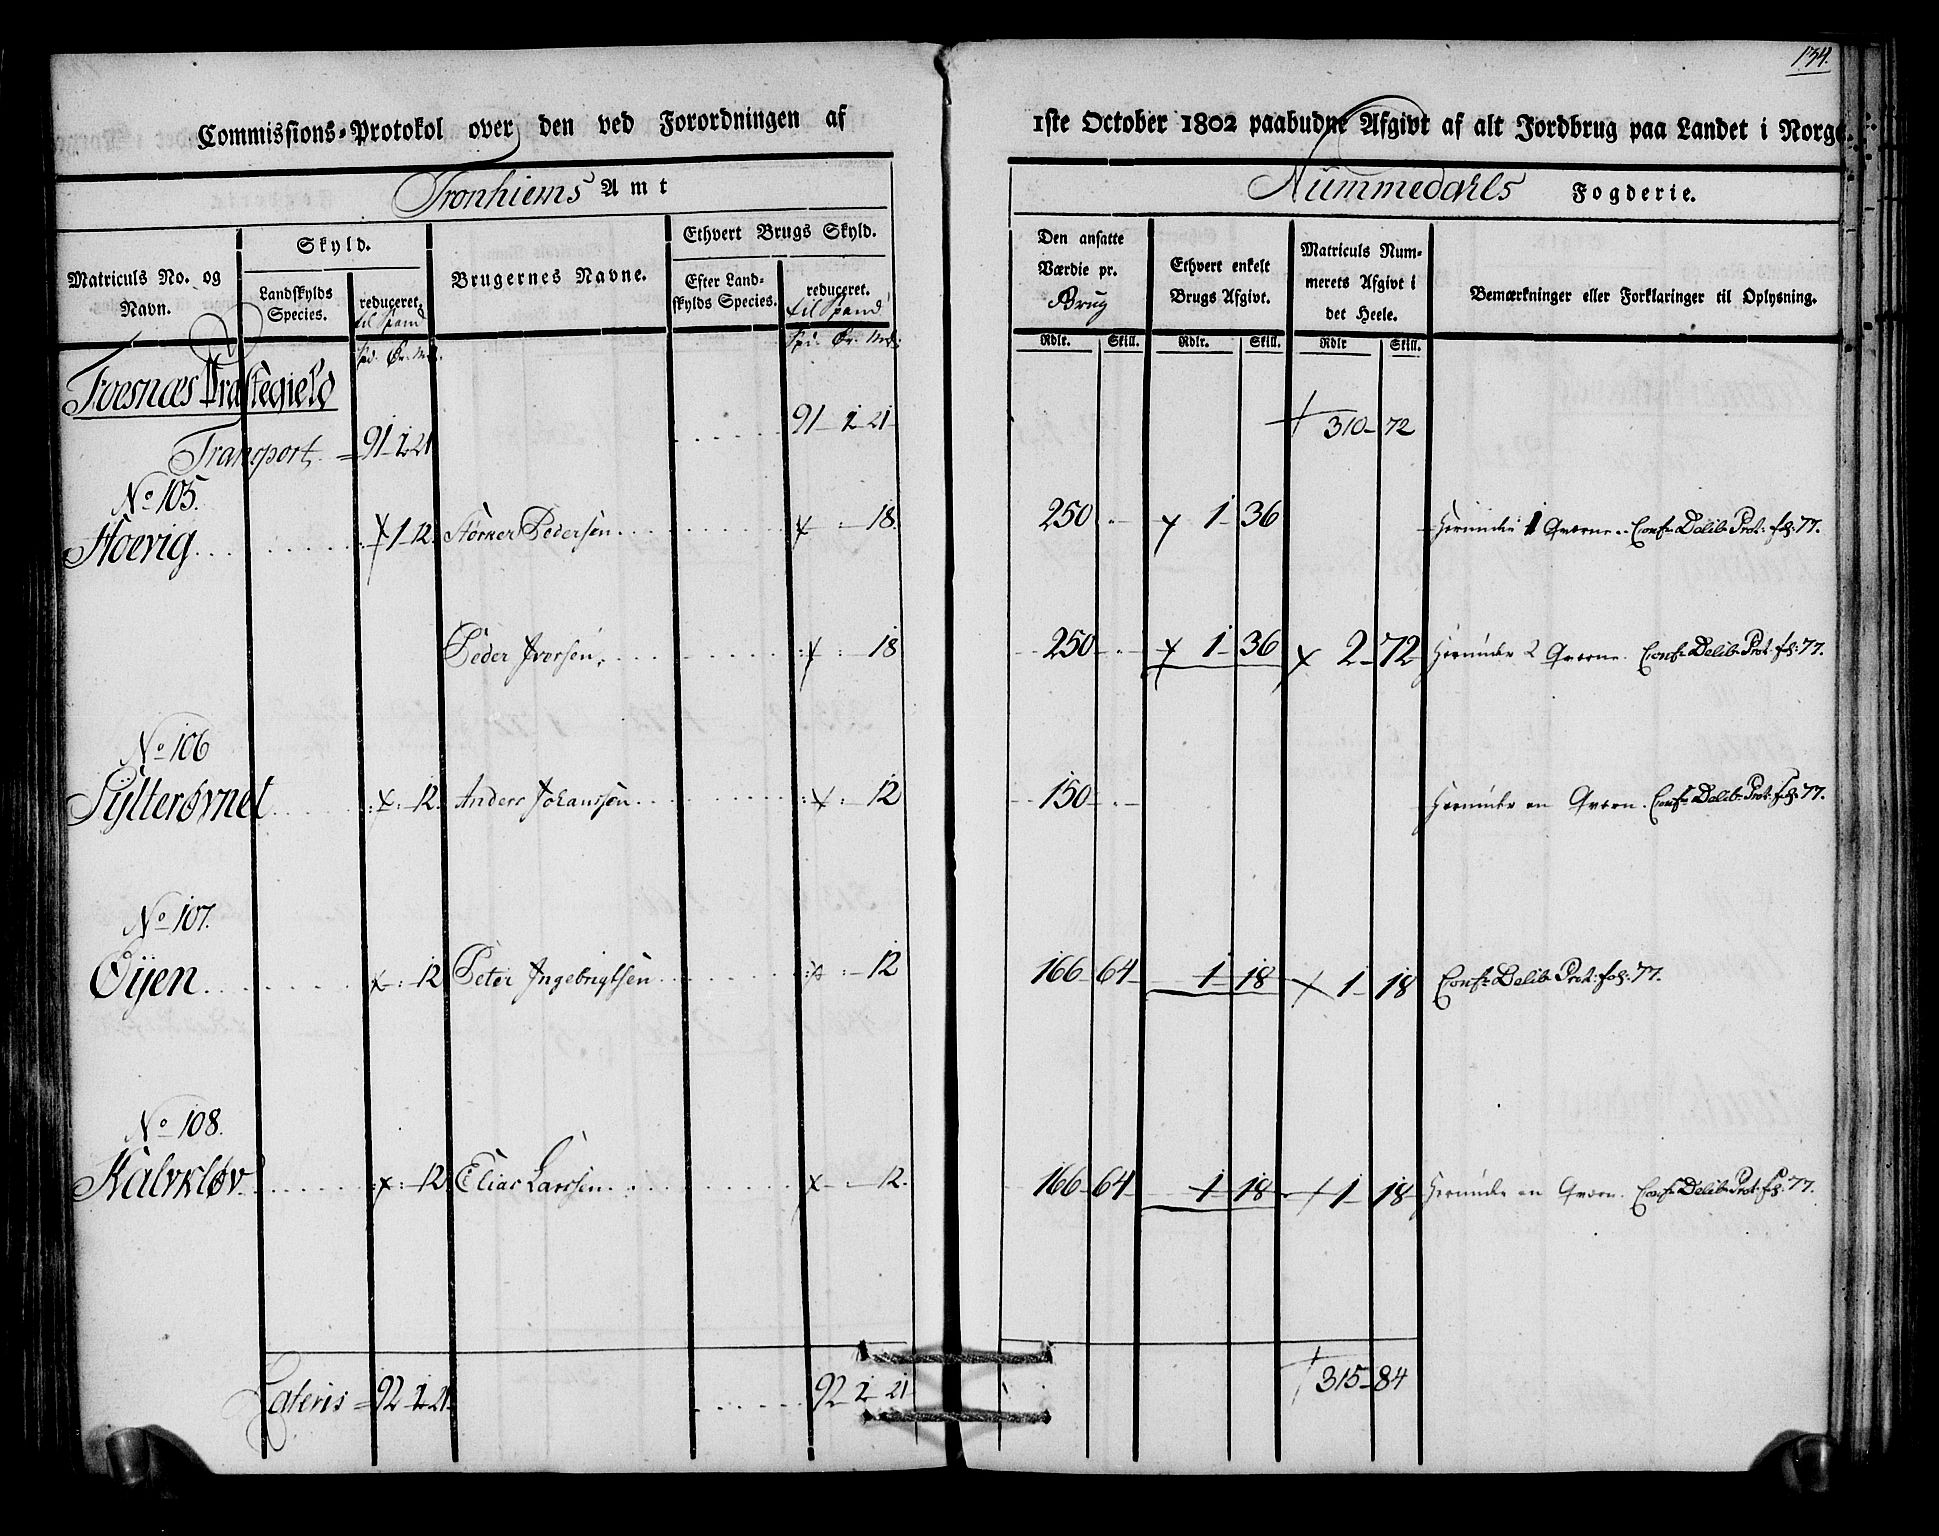 134.
Commissions-Protokol over den ved Forordningen af 1ste October 1802 paabudne Afgivt af alt Jordbrug paa Landet i Norge.
Tronhiems Amt
Nummedahls Fogderie.
Matriculs No. og Navn.
Skyld.
Landskylds Species.
reduceret. til Spand
Brugernes Navne.
Ethvert Brugs Skyld.
Efter Landskylds Species.
reduceret. til Spand
Den ansatte Værdie pr. Brug
Ethvert enkelt Brugs Afgivt.
Matriculs Nummerets Afgivt i det Heele.
Bemærkninger eller Forklaringer til Oplysning.
Spd. Ør. Mkl. Spd. Ør. Mkl. Rdlr. Skill. Rdlr. Skill. Rdlr Skill.
Foesnæs Præstegield
Transport = 91-2-21 91-2-21 310-72
No 105.
Hoevig 1-12. Pedersen 18. 250 1-36 Herunder 1 Qværne. Confr Delib. Prot: fol: 77.
Peder Iversen, 18 250 1-36 2-72 Herunder 2 Qværne. Confr Delib. Prot. fol: 77.
No 106
Sÿlterøvnet 12. Anders Johanssen 12 150 Herunder en Qværn. Confr Delib. Prot: fol: 77.
No 107.
Oÿen 12 Peter Ingebrigtsen 12 166-64 1-18 1-18 Confr Delib. Prot: fol: 77.
No 108.
Kalvkløv 12 Elias Larssen 12. 166-64 1-18 1-18 Herunder en Qværn. Confr Delib. Prot: fol: 77.
Lateris = 92-2-21 92-2-21 315-84